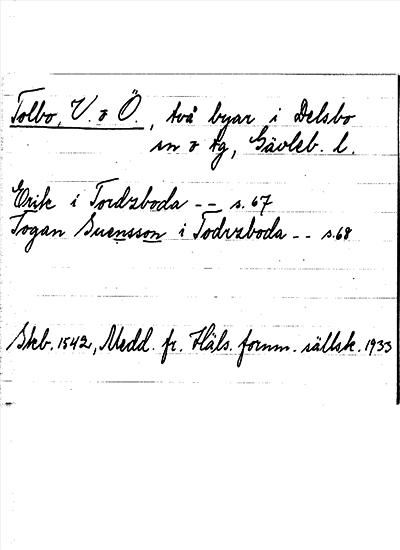 Tolbo, V. o Ö., två byar i Delsbo
sn o tg, Gävleb. l.
Erik i Tordzboda -- s. 67
Togan Suensson i Todrzboda -- s. 68
Skb. 1542, Medd. fr. Häls. fornm. sällsk. 1933